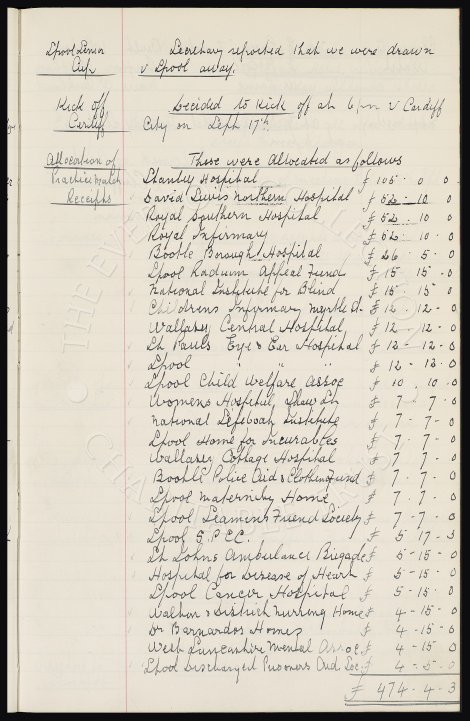 Lpool Senior Secretary reported that we were drawn
Cup v Lpool away.
Kick off Decided to Kick off at 6 pm v Cardiff
Cardiff City on Sept 17th
Allocation of These were Allocated as follows
Practice Match Stanley Hospital £ 105 . 0 0
Receipts David Lewis Northern Hospital £ 52 . 10 0
Royal Southern Hospital £ 52 . 10 0
Royal Infirmary £ 52 . 10 0
Bootle Borough Hospital £ 26 . 5 0
Lpool Radium Appeal Fund £ 15 - 15 - 0
National Institute for Blind £ 15 - 15 0
Childrens Infirmary Myrtle St. £ 12 - 12 - 0
Wallasey Central Hospital £ 12 - 12 - 0
St Pauls Eye & Ear Hospital £ 12 - 12 - 0
Lpool " " " £ 12 - 12 - 0
Lpool Child Welfare Assoc £ 10 . 10 . 0
Womens Hospital, Shaw St £ 7 - 7 . 0
National Lifeboat Institute £ 7 - 7 - 0
Lpool Home for Incurables £ 7 - 7 - 0
Wallasey Cottage Hospital £ 7 . 7 - 0
Bootle Police Aid & Clothing Fund £ 7 - 7 . 0
Lpool Maternity Home £ 7 . 7 . 0
Lpool Seamens Friend Society £ 7 - 7 . 0
Lpool S.P.C.C. £ 5 - 17 - 3
St Johns Ambulance Brigade £ 5 - 15 - 0
Hospital for Disease of Heart £ 5 - 15 . 0
Lpool Cancer Hospital £ 5 - 15 - 0
Walton & District Nursing Home £ 4 - 15 - 0
Dr Barnardos Homes £ 4 - 15 - 0
West Lancashire Mental Assoc £ 4 - 15 0
Lpool Discharged Prisoners Aid Soc. £ 4 - 5 - 0
£ 474 - 4 - 3
THE EVERTON COLLECTION
CHARITABLE TRUST